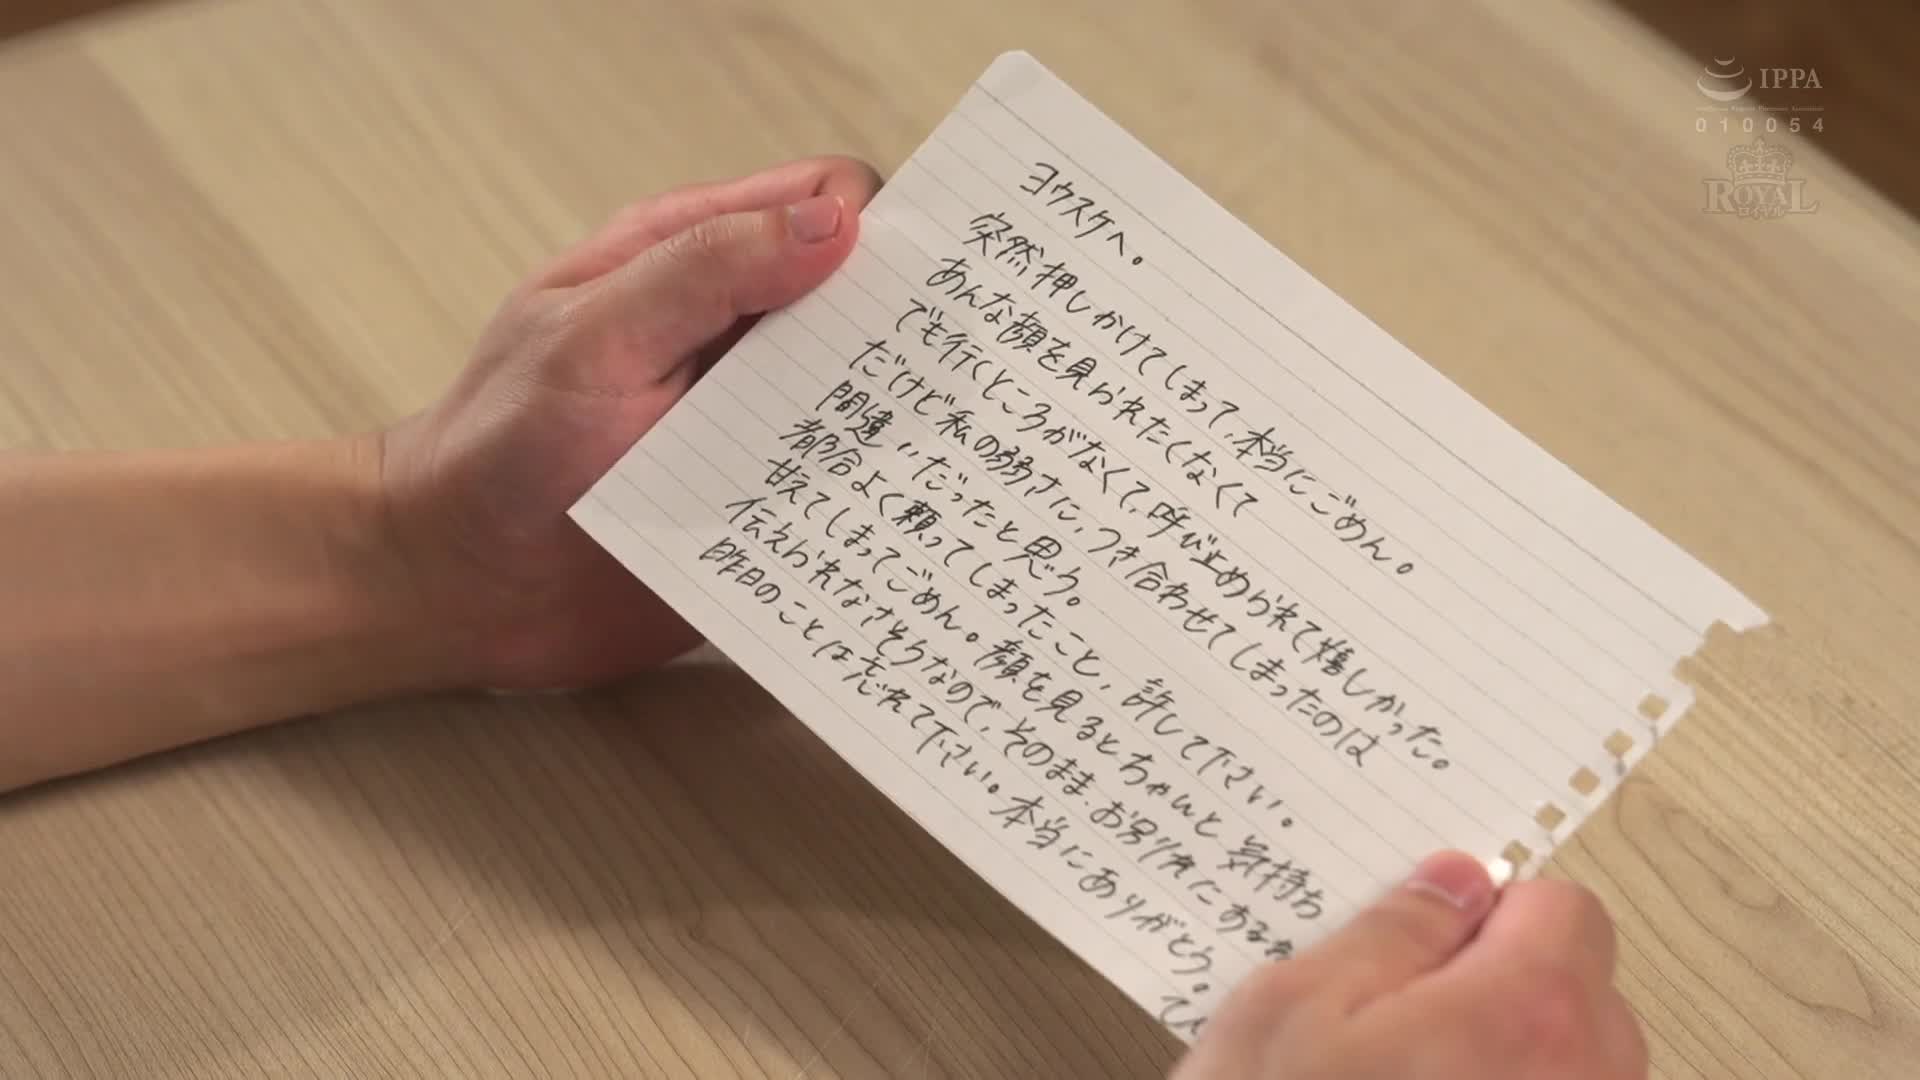 ヨウスケへ。
突然押しかけてしまって、本当にごめん。
あんな顔を見られたくなくて
でも行くところがなくて、呼び止められて嬉しかった。
だけど私の弱さに、つき合わせてしまったのは
間違いだったと思う。
都合よく頼ってしまったこと、許して下さい。
甘えてしまってごめん。顔を見るとちゃんと気持ち
伝えられなさそうなので、そのまま、お別れにする
昨日のことは忘れて下さい。本当にありがとう。
IPPA
010054
ROYAL
ロイヤル